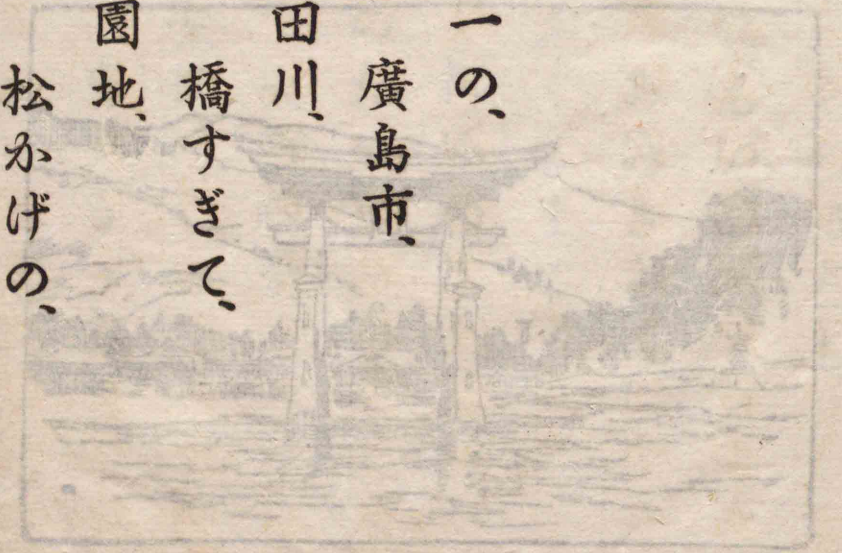 一の、
廣島市、
田川、
橋すぎて、
園地、
松かげの、